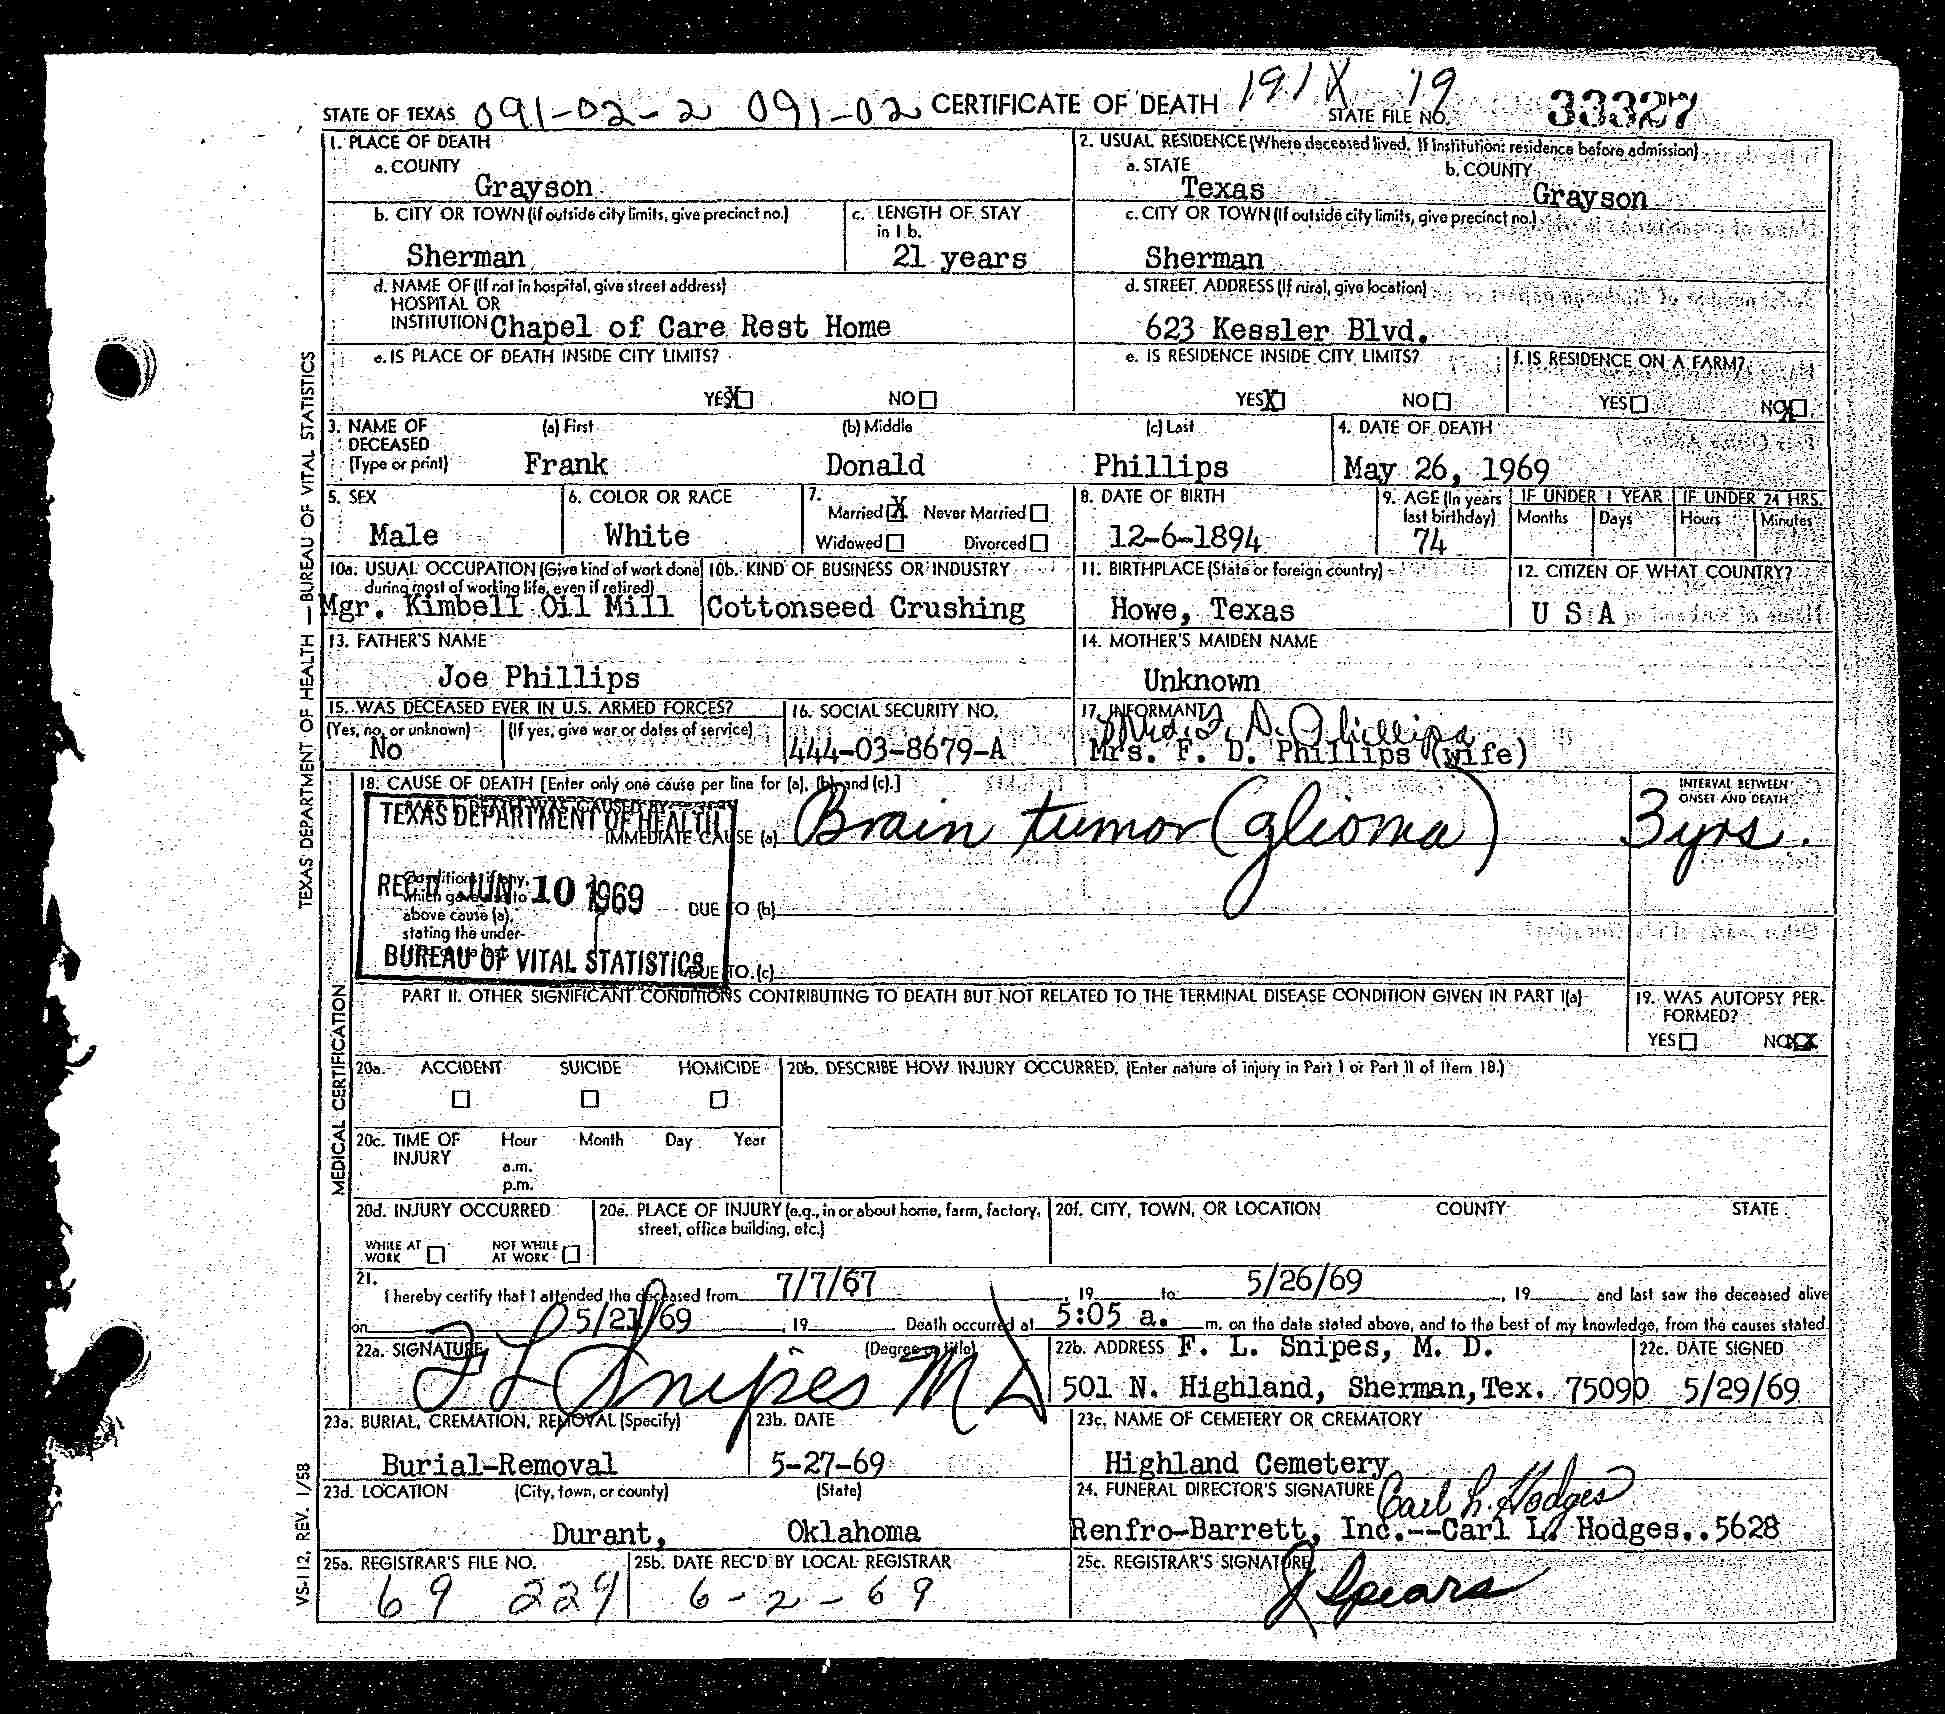 STATE OF TEXAS 091-02-2 091-02 CERTIFICATE OF DEATH 191X 19 STATE FILE NO. 33327
1. PLACE OF DEATH
a. COUNTY
Grayson
2. USUAL RESIDENCE (Where deceased lived. If institution: residence before admission)
a. STATE b. COUNTY
Texas Grayson
b. CITY OR TOWN (if outside city limits, give precinct no.)
Sherman
c. LENGTH OF STAY
in 1 b.
21 years
c. CITY OR TOWN (If outside city limits, give precinct no.)
Sherman
d. NAME OF (If not in hospital, give street address)
HOSPITAL OR
INSTITUTION Chapel of Care Rest Home
d. STREET ADDRESS (If rural, give location)
623 Kessler Blvd.
e. IS PLACE OF DEATH INSIDE CITY LIMITS?
YES X NO
e. IS RESIDENCE INSIDE CITY LIMITS?
YES X NO
f. IS RESIDENCE ON A FARM?
YES NO X
3. NAME OF DECEASED
(Type or print)
(a) First (b) Middle (c) Last
Frank Donald Phillips
4. DATE OF DEATH
May 26, 1969
5. SEX
Male
6. COLOR OR RACE
White
7.
Married X Never Married
Widowed Divorced
8. DATE OF BIRTH
12-6-1894
9. AGE (In years
last birthday)
74
IF UNDER 1 YEAR IF UNDER 24 HRS.
Months Days Hours Minutes
10a. USUAL OCCUPATION (Give kind of work done
during most of working life, even if retired)
Mgr. Kimbell Oil Mill
10b. KIND OF BUSINESS OR INDUSTRY
Cottonseed Crushing
11. BIRTHPLACE (State or foreign country)
Howe, Texas
12. CITIZEN OF WHAT COUNTRY?
U S A
13. FATHER'S NAME
Joe Phillips
14. MOTHER'S MAIDEN NAME
Unknown
15. WAS DECEASED EVER IN U.S. ARMED FORCES?
(Yes, no, or unknown) (If yes, give war or dates of service)
No
16. SOCIAL SECURITY NO.
444-03-8679-A
17. INFORMANT
Mrs. F. D. Phillips
Mrs. F. D. Phillips (wife)
18. CAUSE OF DEATH [Enter only one cause per line for (a), (b) and (c).]
PART I. DEATH WAS CAUSED BY:
IMMEDIATE CAUSE (a) Brain tumor (glioma)
INTERVAL BETWEEN
ONSET AND DEATH
3 yrs.
TEXAS DEPARTMENT OF HEALTH
REC'D JUN 10 1969
BUREAU OF VITAL STATISTICS
Conditions, if any,
which gave rise to
above cause (a),
stating the under-
DUE TO (b)
DUE TO (c)
PART II. OTHER SIGNIFICANT CONDITIONS CONTRIBUTING TO DEATH BUT NOT RELATED TO THE TERMINAL DISEASE CONDITION GIVEN IN PART I(a)
19. WAS AUTOPSY PER-
FORMED?
YES NO XX
20a. ACCIDENT SUICIDE HOMICIDE
20b. DESCRIBE HOW INJURY OCCURRED. (Enter nature of injury in Part I or Part II of Item 18.)
20c. TIME OF INJURY
Hour Month Day Year
a.m.
p.m.
20d. INJURY OCCURRED
WHILE AT WORK NOT WHILE AT WORK
20e. PLACE OF INJURY (e.g., in or about home, farm, factory,
street, office building, etc.)
20f. CITY, TOWN, OR LOCATION COUNTY STATE
21.
I hereby certify that I attended the deceased from 7/7/67, 19 to 5/26/69, 19 and last saw the deceased alive
on 5/21/69, 19 Death occurred at 5:05 a. m. on the date stated above, and to the best of my knowledge, from the causes stated.
22a. SIGNATURE (Degree or title)
F L Snipes MD
22b. ADDRESS F. L. Snipes, M. D.
501 N. Highland, Sherman, Tex. 75090
22c. DATE SIGNED
5/29/69
23a. BURIAL, CREMATION, REMOVAL (Specify)
Burial-Removal
23b. DATE
5-27-69
23c. NAME OF CEMETERY OR CREMATORY
Highland Cemetery
23d. LOCATION (City, town, or county) (State)
Durant, Oklahoma
24. FUNERAL DIRECTOR'S SIGNATURE Carl L. Hodges
Renfro-Barrett, Inc.--Carl L. Hodges..5628
25a. REGISTRAR'S FILE NO.
69 229
25b. DATE REC'D BY LOCAL REGISTRAR
6-2-69
25c. REGISTRAR'S SIGNATURE
J Spears
TEXAS DEPARTMENT OF HEALTH — BUREAU OF VITAL STATISTICS
MEDICAL CERTIFICATION
VS-112, REV. 1/58